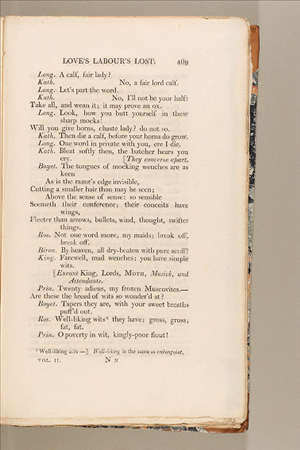 LOVE'S LABOUR'S LOST. 469
Long. A calf, fair lady?
Kath. No, a fair lord calf.
Long. Let's part the word.
Kath. No, I'll not be your half:
Take all, and wean it; it may prove an ox.
Long. Look, how you butt yourself in these
sharp mocks!
Will you give horns, chaste lady? do not so.
Kath. Then die a calf, before your horns do grow.
Long. One word in private with you, ere I die.
Kath. Bleat softly then, the butcher hears you
cry. [They converse apart.
Boyet. The tongues of mocking wenches are as
keen
As is the razor's edge invisible,
Cutting a smaller hair than may be seen;
Above the sense of sense: so sensible
Seemeth their conference; their conceits have
wings,
Fleeter than arrows, bullets, wind, thought, swifter
things.
Ros. Not one word more, my maids; break off,
break off.
Biron. By heaven, all dry-beaten with pure scoff!
King. Farewell, mad wenches; you have simple
wits.
[Exeunt King, Lords, MOTH, Musick, and
Attendants.
Prin. Twenty adieus, my frozen Muscovites.—
Are these the breed of wits so wonder'd at?
Boyet. Tapers they are, with your sweet breaths
puff'd out.
Ros. Well-liking wits¹ they have; gross, gross;
fat, fat.
Prin. O poverty in wit, kingly-poor flout!
¹ Well-liking wits —] Well-liking is the same as embonpoint.
VOL. II. N n